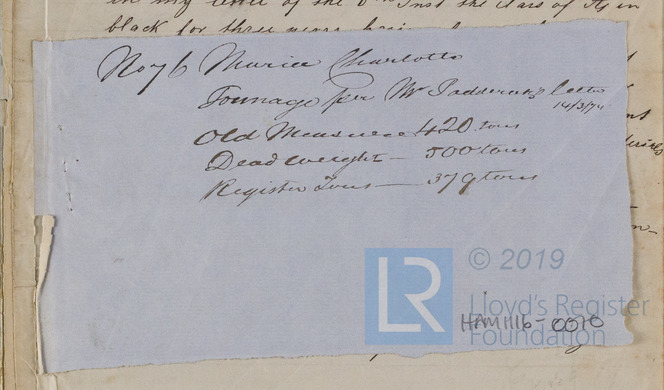 in my letter of the 6th Inst the class of A1 in
black for three years
No 76 Marie Charlotte
Tonnage per Mr letter
14/3/74
Old Measure 420 tons
Dead weight — 500 tons
Register Tons — 379 tons
LR
© 2019
Lloyd's Register
Foundation
HAM1116-0070